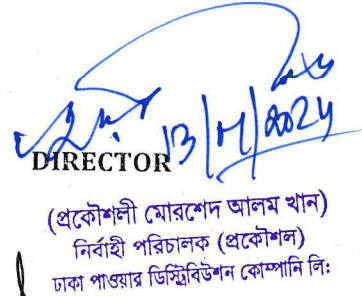 DIRECTOR
(প্রকৌশলী মোরশেদ আলম খান)
নির্বাহী পরিচালক (প্রকৌশল)
ঢাকা পাওয়ার ডিস্ট্রিবিউশন কোম্পানি লি: